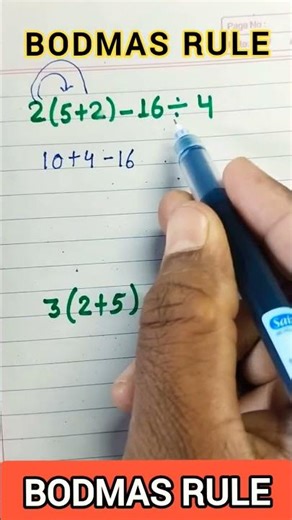 BODMAS RULE
Page No :
2(5+2)-16÷4
10+4-16
3(2+5)
BODMAS RULE